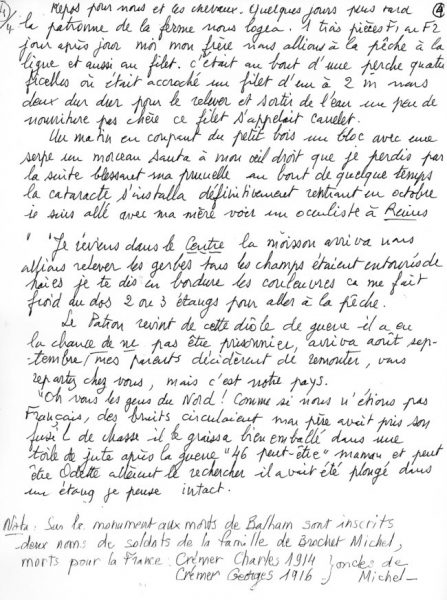 4/4 Repos pour nous et les chevaux. Quelques jours plus tard ④
la patronne de la ferme nous logea. 1 très pièces F1 ou F2
jour après jour moi mon frère nous allions à la pêche à la
ligne et aussi au filet. c'était au bout d'une perche quatre
ficelles où était accroché un filet d'un à 2 m nous
deux dur dur pour le relever et sortir de l'eau un peu de
nourriture pas chère ce filet s'appelait carrelet.
Un matin en coupant du petit bois un bloc avec une
serpe un morceau sauta à mon œil droit que je perdis par
la suite blessant ma prunelle au bout de quelque temps
la cataracte s'installa définitivement rentrant en octobre
je suis allé avec ma mère voir un occuliste à Reims
" "Je reviens dans le Centre la moisson arriva nous
allions relever les gerbes tous les champs étaient entourés de
haies je te dis en bordure les couleuvres ca me fait
froid du dos 2 ou 3 étangs pour aller à la pêche.
Le Patron revint de cette drôle de guerre il a eu
la chance de ne pas être prisonnier, arriva août sep-
tembre/mes parents décidèrent de remonter, vous
repartez chez vous, mais c'est notre pays.
"Oh vous les gens du Nord! Comme si nous n'étions pas
Français, des bruits circulaient mon père avait pris son
fusil de chasse il le graissa bien emballé dans une
toile de jute après la guerre "46 peut-être" maman et peut
être Odette allèrent le rechercher il avait été plongé dans
un étang je pense intact.
Nota: Sur le monument aux morts de Balham sont inscrits
deux noms de soldats de la famille de Brochet Michel,
morts pour la France: Crémer Charles 1914 } oncles de
Crémer Georges 1916 } Michel-